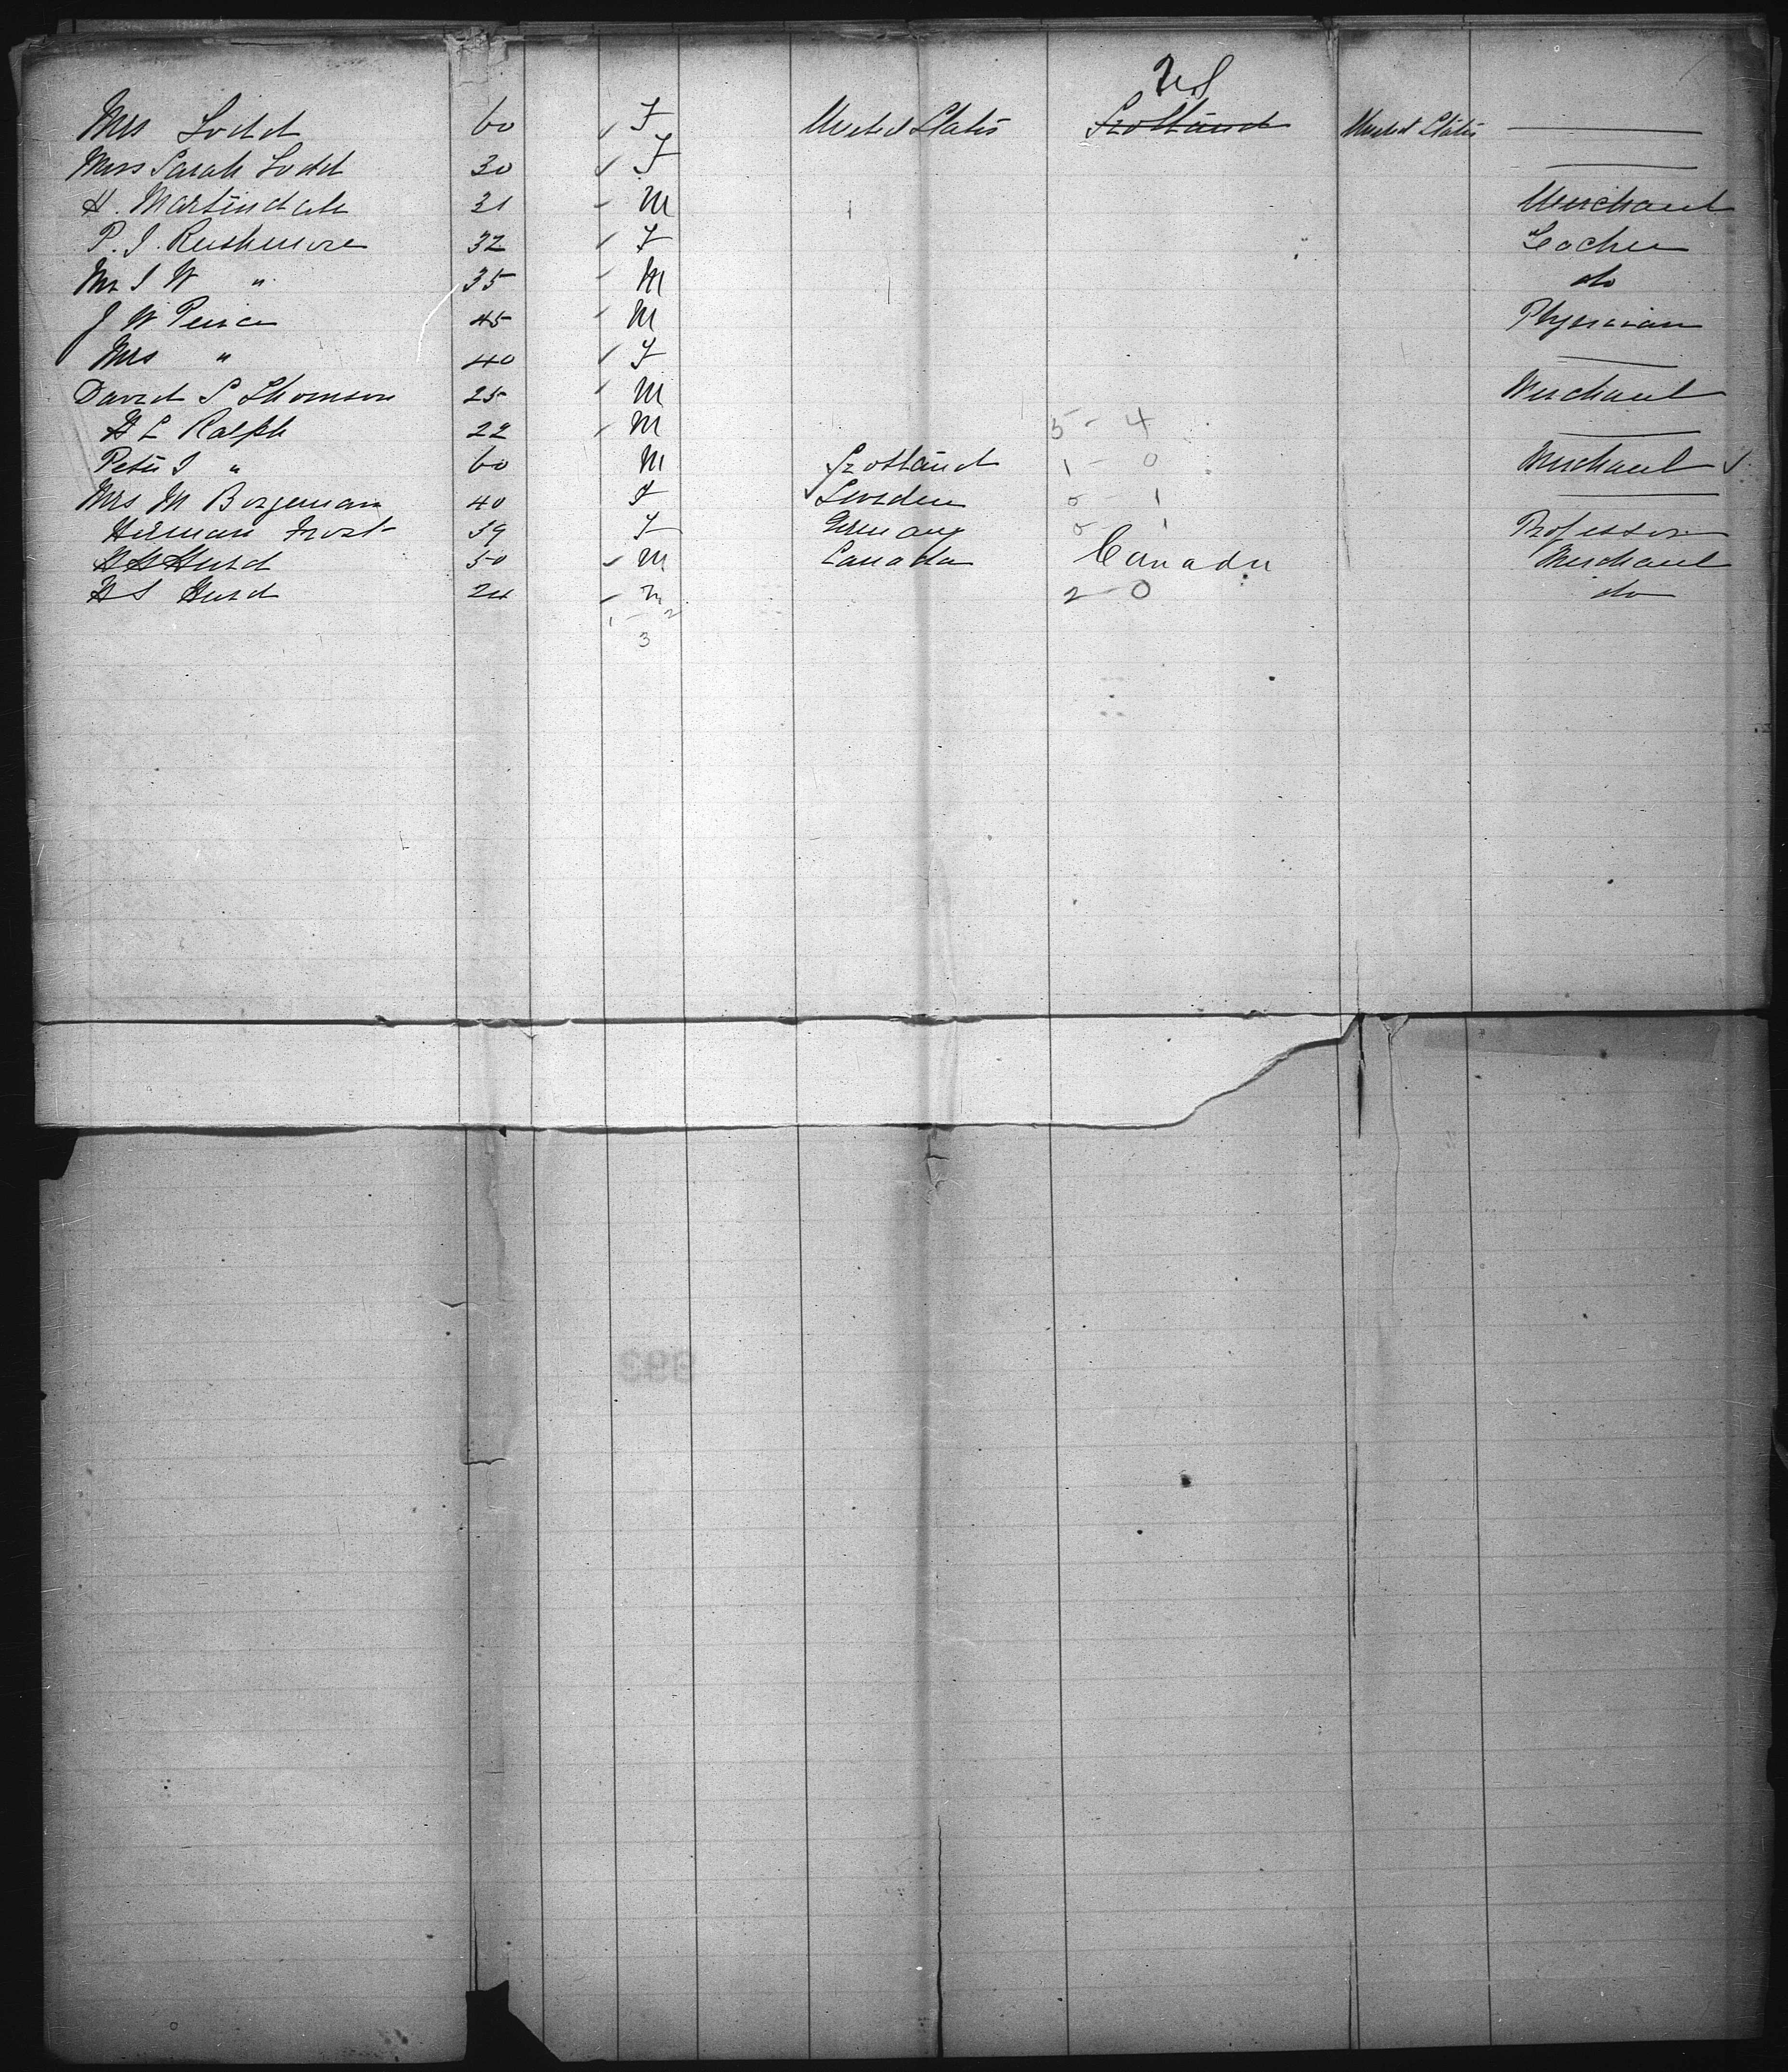 U.S
Mrs Todd 60 F United States Scotland United States
Miss Sarah Todd 30 F
H. Martindale 31 M Merchant
P. J. Rushmore 32 F Teacher
Mr J W " 35 M do
J W Peirce 45 M Physician
Mrs " 40 F
David S Thomson 25 M Merchant
H L Ralph 22 M 5 - 4
Peter J " 60 M Scotland 1 - 0 Merchant
Mrs M Borgeman 40 F Sweden 0 - 1
Herman Frost 39 F Germany 0 1 Professor
Hurd 50 M Canada Canada Merchant
H S Hurd 24 M 2 - 0 do
1 - 2
3